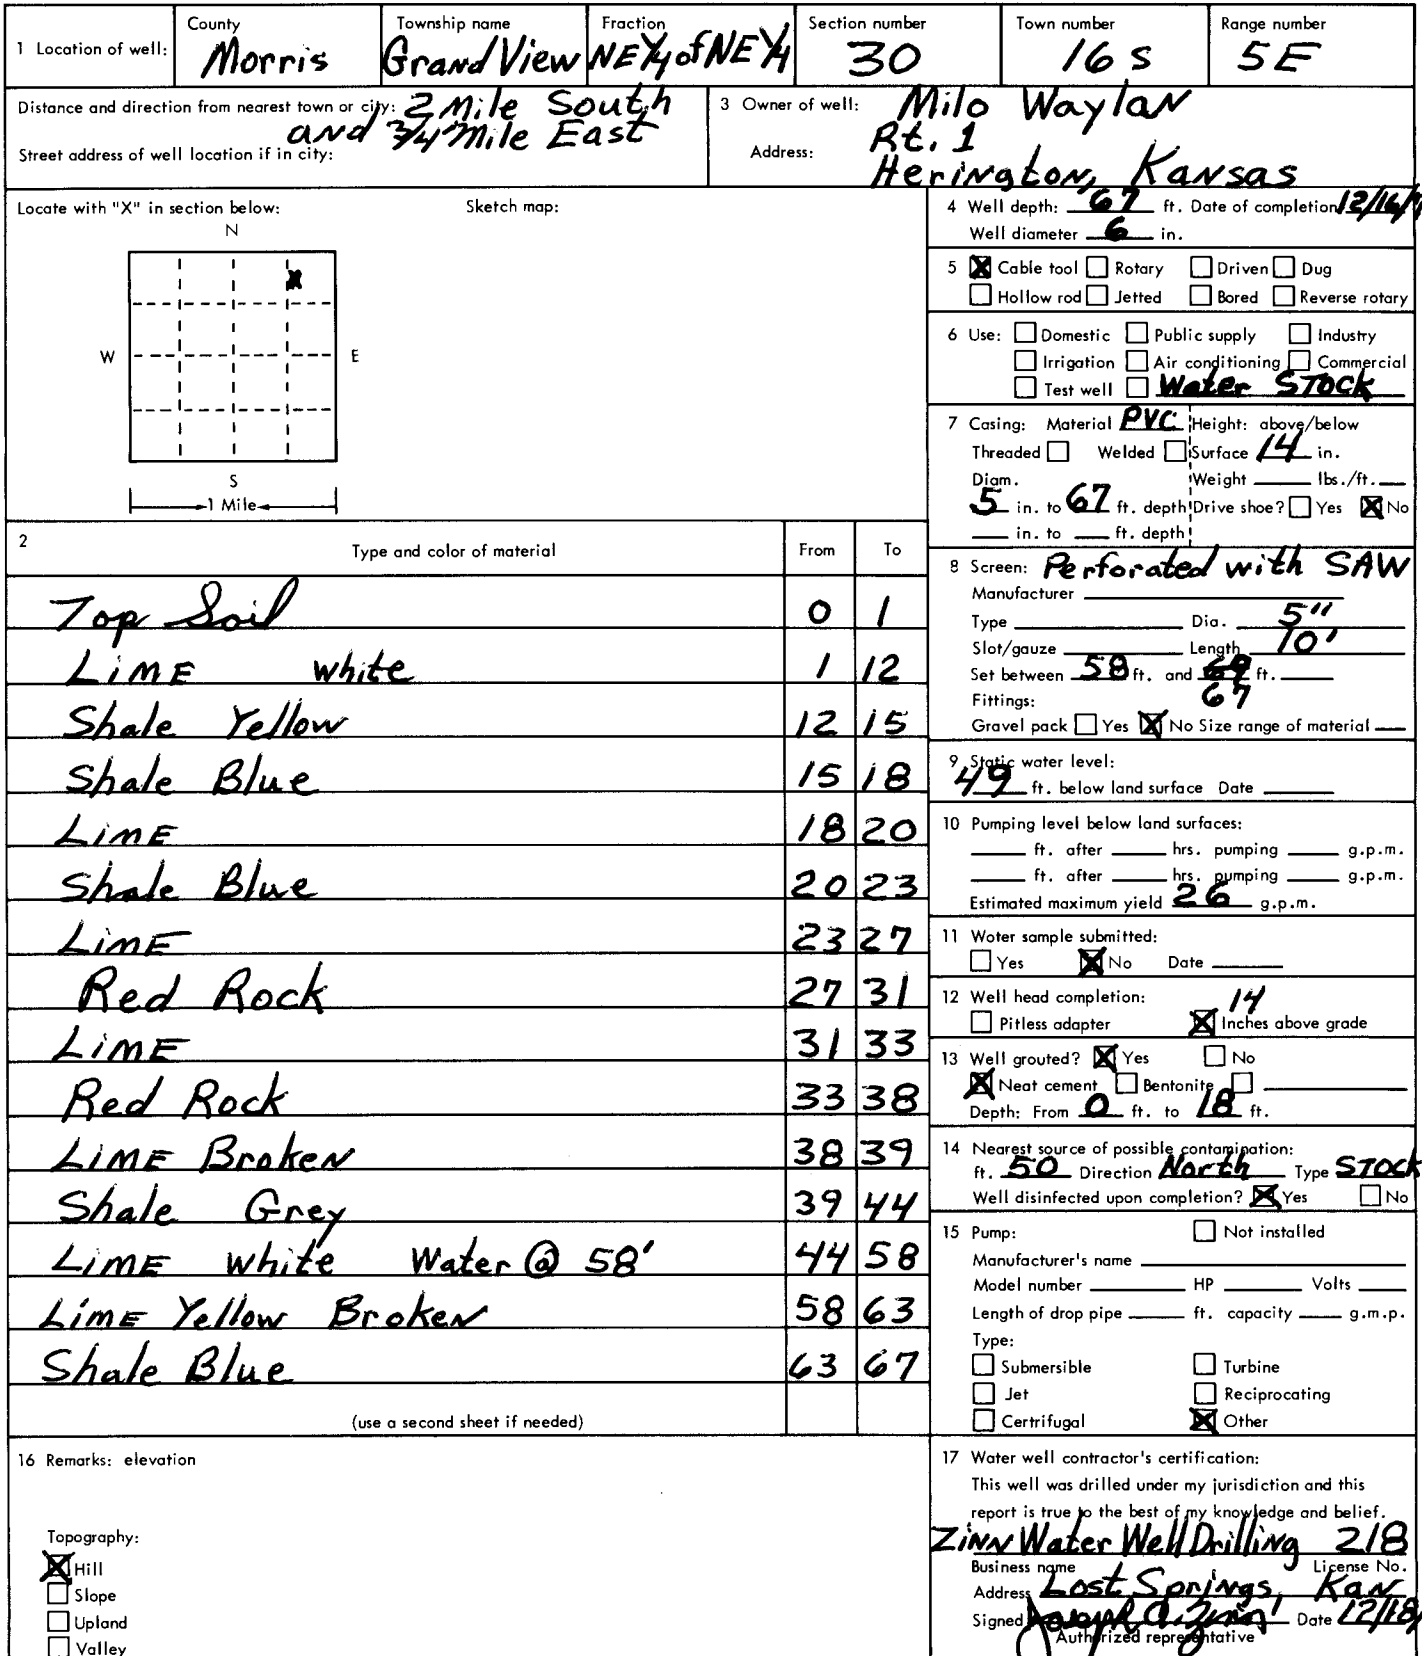 1 Location of well: County Morris Township name Grand View Fraction NE¼ of NE¼ Section number 30 Town number 16 S Range number 5E
Distance and direction from nearest town or city: 2 Mile South
and 3/4 Mile East
Street address of well location if in city:
3 Owner of well: Milo Waylan
Address: Rt. 1
Herington, Kansas
Locate with "X" in section below: Sketch map:
N
X
W E
S
1 Mile
2 Type and color of material From To
Top Soil 0 1
Lime white 1 12
Shale Yellow 12 15
Shale Blue 15 18
Lime 18 20
Shale Blue 20 23
Lime 23 27
Red Rock 27 31
Lime 31 33
Red Rock 33 38
Lime Broken 38 39
Shale Grey 39 44
Lime white Water @ 58' 44 58
Lime Yellow Broken 58 63
Shale Blue 63 67
(use a second sheet if needed)
4 Well depth: 67 ft. Date of completion 12/16/
Well diameter 6 in.
5 X Cable tool Rotary Driven Dug
Hollow rod Jetted Bored Reverse rotary
6 Use: Domestic Public supply Industry
Irrigation Air conditioning Commercial
Test well Water STOCK
7 Casing: Material PVC Height: above/below
Threaded Welded Surface 14 in.
Diam. Weight lbs./ft.
5 in. to 67 ft. depth Drive shoe? Yes X No
in. to ft. depth
8 Screen: Perforated with SAW
Manufacturer
Type Dia. 5"
Slot/gauze Length 10'
Set between 58 ft. and ft.
67
Fittings:
Gravel pack Yes X No Size range of material
9 Static water level:
49 ft. below land surface Date
10 Pumping level below land surfaces:
ft. after hrs. pumping g.p.m.
ft. after hrs. pumping g.p.m.
Estimated maximum yield 26 g.p.m.
11 Woter sample submitted:
Yes X No Date
12 Well head completion: 14
Pitless adapter X Inches above grade
13 Well grouted? X Yes No
X Neat cement Bentonite
Depth: From 0 ft. to 18 ft.
14 Nearest source of possible contamination:
ft. 50 Direction North Type STOCK
Well disinfected upon completion? X Yes No
15 Pump: Not installed
Manufacturer's name
Model number HP Volts
Length of drop pipe ft. capacity g.m.p.
Type:
Submersible Turbine
Jet Reciprocating
Certrifugal X Other
16 Remarks: elevation
Topography:
X Hill
Slope
Upland
Valley
17 Water well contractor's certification:
This well was drilled under my jurisdiction and this
report is true to the best of my knowledge and belief.
Zinn Water Well Drilling 218
Business name License No.
Address Lost Springs, Kan
Signed Joseph A. Zinn Date 12/18/
Authorized representative